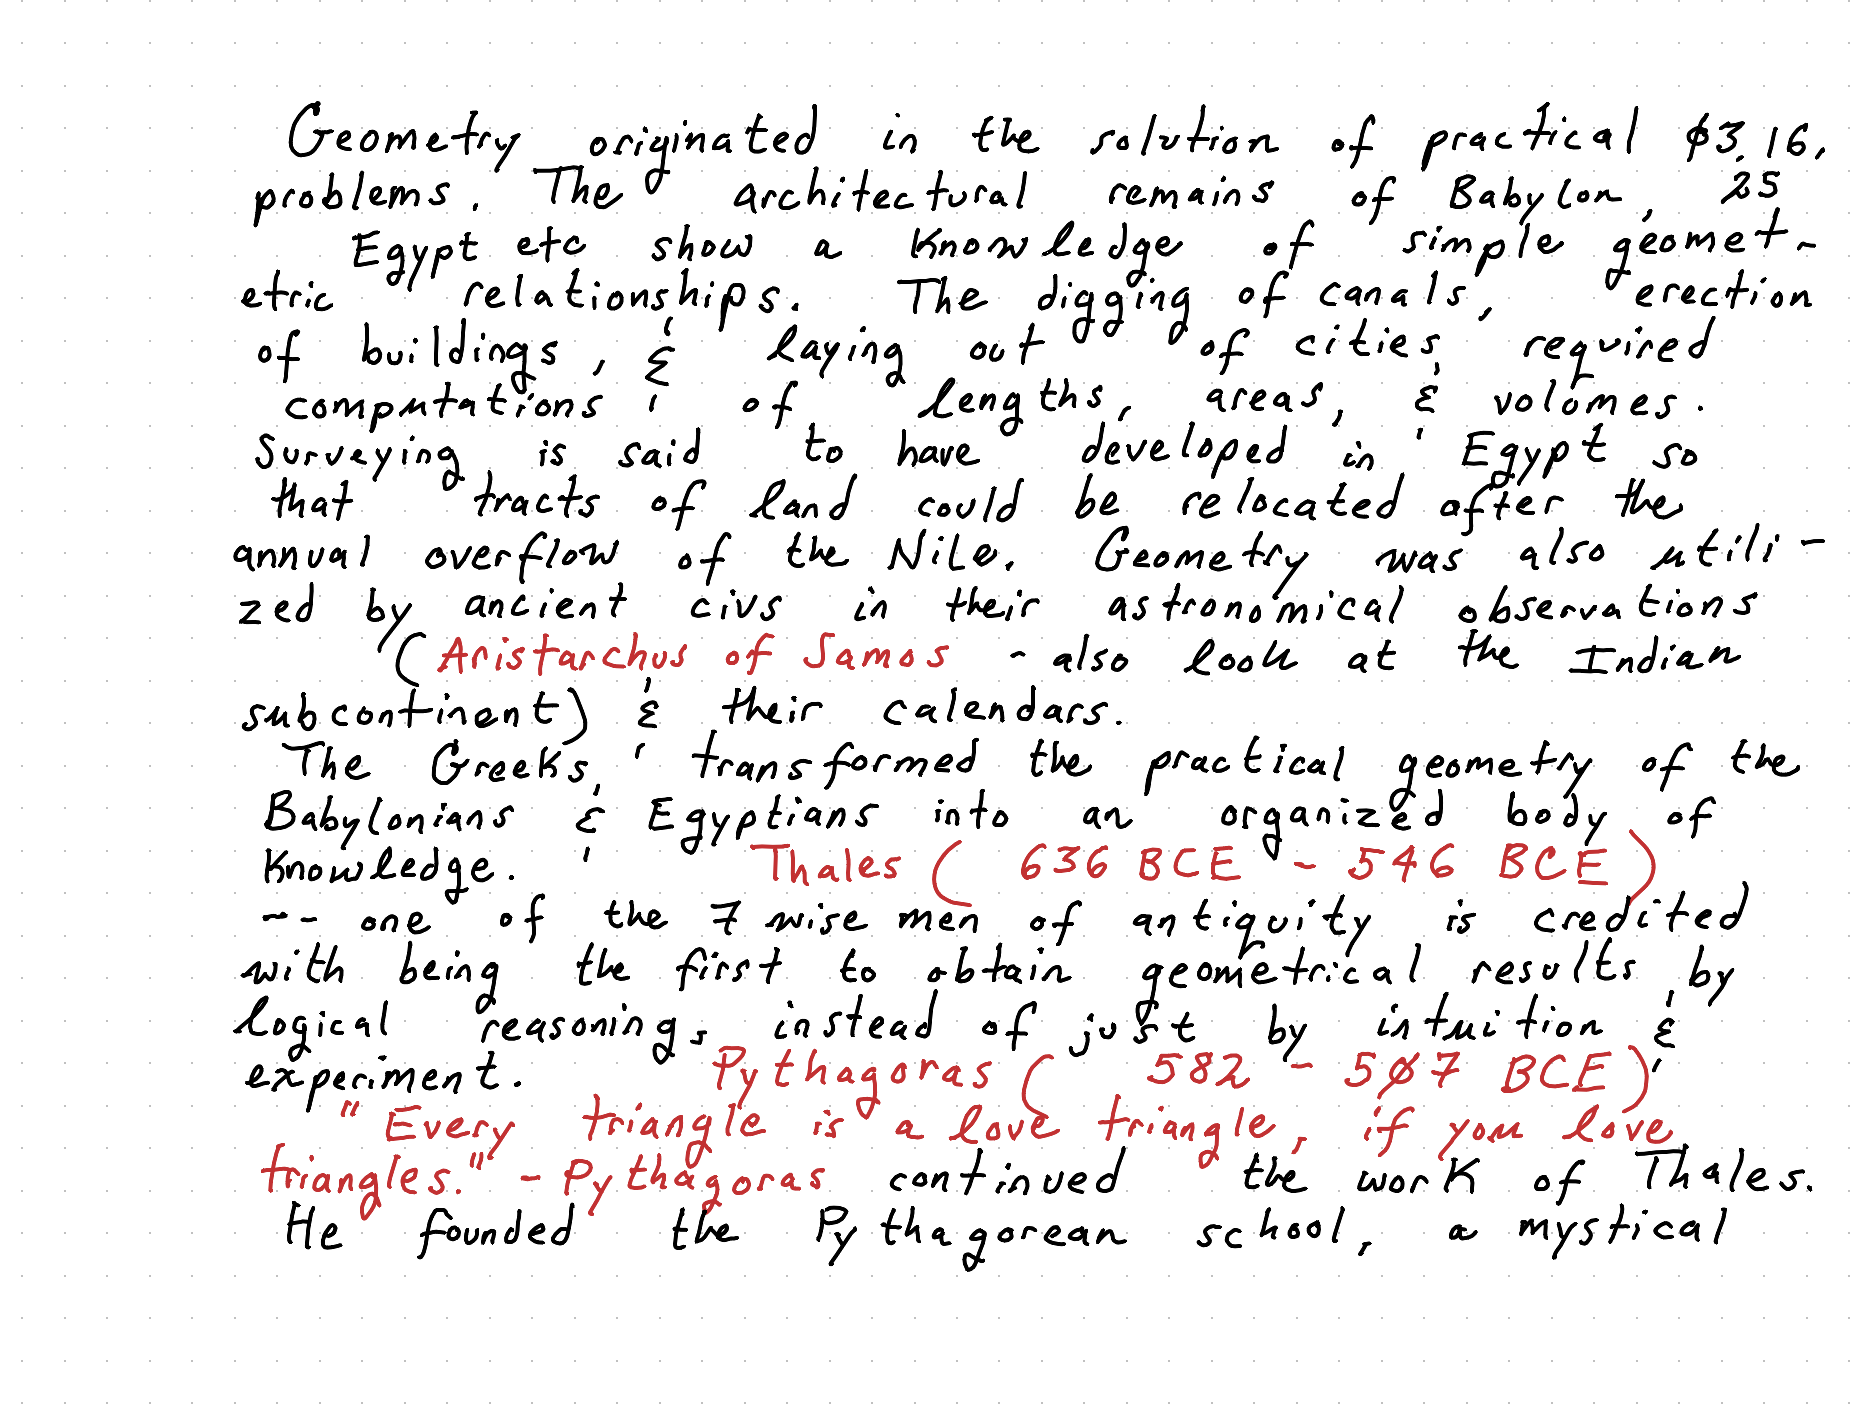 Geometry originated in the solution of practical ϕ3.16,
problems. The architectural remains of Babylon, 25
Egypt etc show a knowledge of simple geomet-
etric relationships. The digging of canals, erection
of buildings, & laying out of cities required
computations of lengths, areas, & volumes.
Surveying is said to have developed in Egypt so
that tracts of land could be relocated after the
annual overflow of the Nile. Geometry was also utili-
zed by ancient civs in their astronomical observations
(Aristarchus of Samos - also look at the Indian
subcontinent) & their calendars.
The Greeks, transformed the practical geometry of the
Babylonians & Egyptians into an organized body of
knowledge. Thales (636 BCE - 546 BCE)
-- one of the 7 wise men of antiquity is credited
with being the first to obtain geometrical results by
logical reasoning, instead of just by intuition &
experiment. Pythagoras (582 - 507 BCE)
"Every triangle is a love triangle, if you love
triangles." - Pythagoras continued the work of Thales.
He founded the Pythagorean school, a mystical